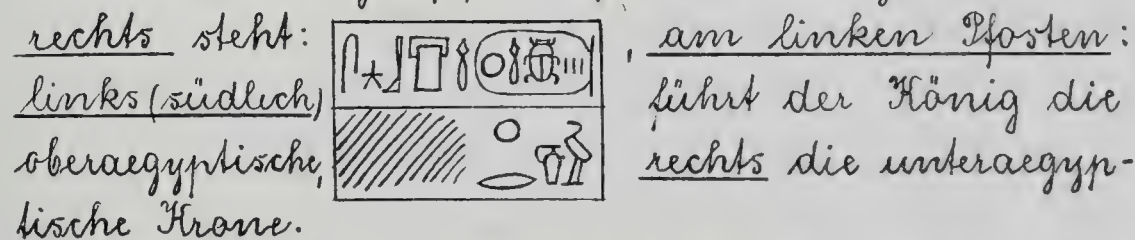 rechts steht: , am linken Pfosten:
links (südlich) führt der König die
oberaegyptische, rechts die unteraegyp-
tische Krone.